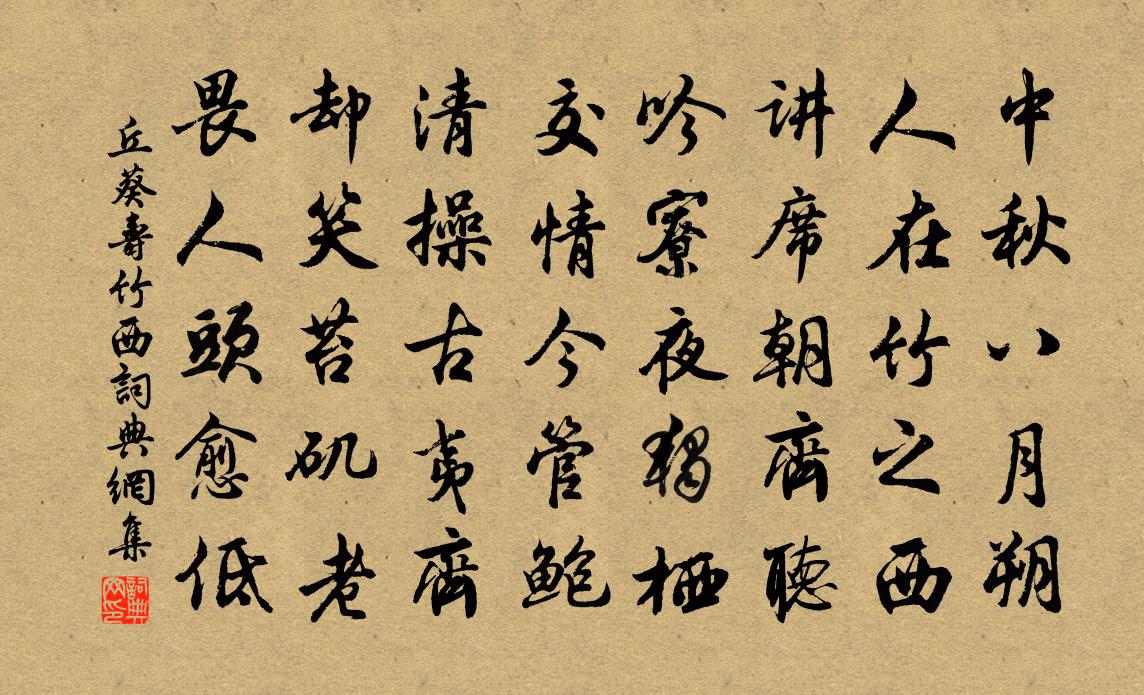 中秋八月朔
人在竹之西
讲席朝齊聽
吟寮夜獨栖
交情今管鲍
清操古夷齊
却笑苔矶老
畏人頭愈低
丘葵壽竹西詞典網集
詞典网印